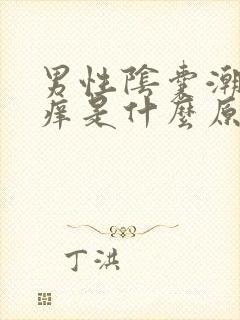 男性陰囊潮
痒是什麼原
丁洪